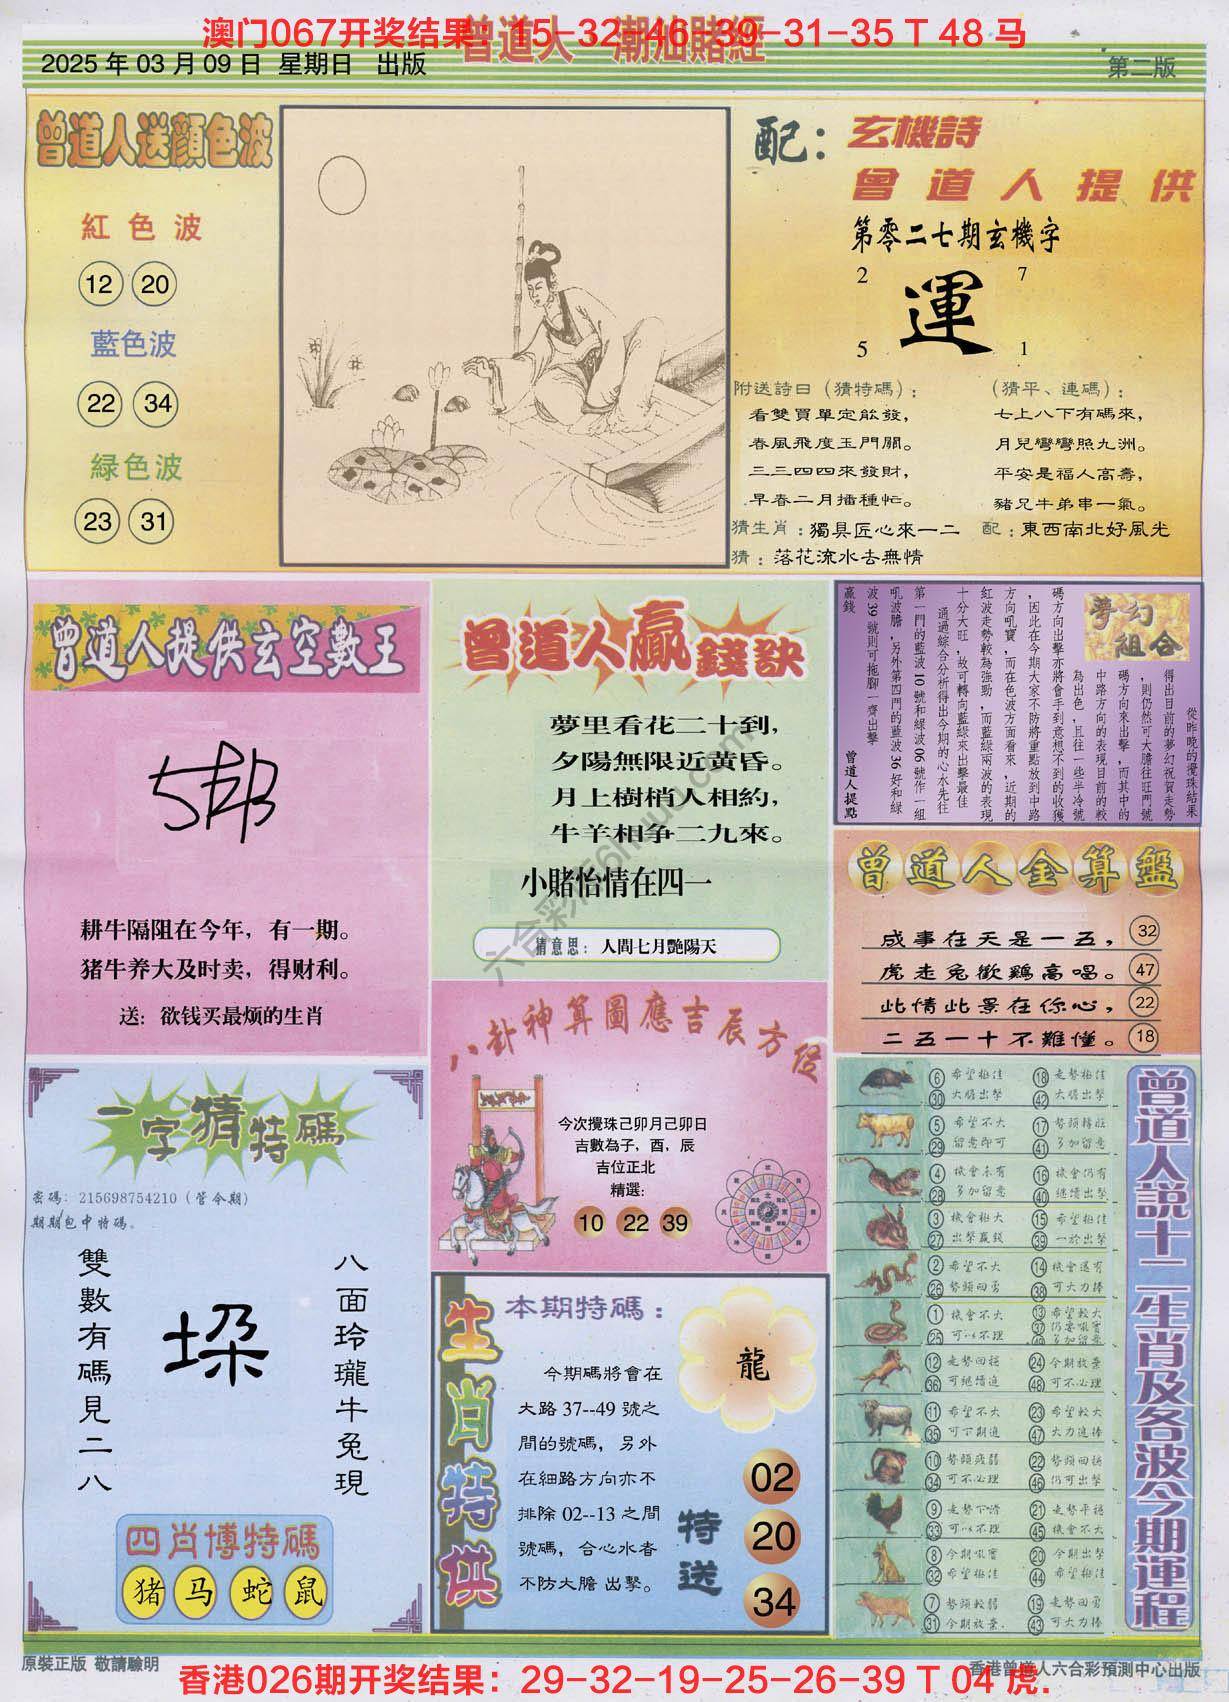 澳门067开奖结果:15-32-46-39-31-35 T 48 马
曾道人 潮汕賭經
2025 年 03 月 09 日 星期日 出版
第二版
曾道人送顏色波
紅色波
12 20
藍色波
22 34
緑色波
23 31
配:玄機詩
曾道人提供
第零二七期玄機字
2 7
運
5 1
附送詩日(猜特碼):
看雙買單定能發,
春風飛度玉門關。
三三四四來發財,
早春二月播種忙。
(猜平、連碼):
七上八下有碼來,
月兒彎彎照九洲。
平安是福人高壽,
豬兄牛弟串一氣。
猜生肖:獨具匠心來一二
配:東西南北好風光
猜:落花流水去無情
曾道人提供玄空數王
耕牛隔阻在今年,有一期。
猪牛养大及时卖,得财利。
送:欲钱买最烦的生肖
曾道人贏錢訣
夢里看花二十到,
夕陽無限近黃昏。
月上樹梢人相約,
牛羊相争二九來。
小賭怡情在四一
猜意思:人間七月艷陽天
夢幻組合
從昨晚的攪珠結果
得出目前的夢幻祝賀走勢
,則仍然可大膽往旺門號
碼方向來出擊,而其中的
中路方向的表現目前的較
為出色,且往一些半冷號
碼方向出擊亦將會手到意想不到的收獲
,因此在今期大家不防將重點放到中路
方向吼寶,而在色波方面看來,近期的
紅波走勢較為強勁,而藍綠兩波的表現
十分大旺,故可轉向藍綠來出擊最佳
通過綜合分析得出今期的心水先往
第一門的藍波 10 號和綠波 06 號作一組
吼波膽,另外第四門的藍波 36 好和綠
波 39 號則可拖腳一齊出擊
贏錢
曾道人提點
曾道人金算盤
成事在天是一五, 32
虎走兔歡鷄高唱。 47
此情此景在係心, 22
二五一十不難懂。 18
八卦神算圖應吉辰方位
今次攪珠己卯月己卯日
吉數為子,酉,辰
吉位正北
精選:
10 22 39
一字猜特碼
密碼:215698754210(管今期)
期期包中特碼。
雙數有碼見二八
垛
八面玲瓏牛兔現
四肖博特碼
猪 马 蛇 鼠
生肖特供
本期特碼:
龍
今期碼將會在
大路 37--49 號之
間的號碼,另外
在細路方向亦不
排除 02--13 之間
號碼,合心水者
不防大膽 出擊。
特送
02
20
34
曾道人説十二生肖及各波今期運程
6 希望極佳 18 走勢極佳
30 大膽出擊 42 大膽出擊
5 希望不大 17 勢頭轉旺
29 留意即可 41 多加留意
4 機會未有 16 機會仍有
28 多加留意 40 継續出擊
3 機會極大 15 希望極佳
27 出擊贏錢 39 一於出擊
2 希望不大 14 機會還有
26 勢頭回勇 38 可大力捧
1 機會不大 13 希望較大
25 可以不理 37 仍要吼實
多加留意
12 走勢回穩 24 今期放棄
36 可继續追 48 可不必理
11 希望不大 23 希望較大
35 可下期追 47 大力追捧
10 勢頭疲弱 22 勢頭回穩
34 可不必理 46 仍可出擊
9 走勢下滑 21 走勢平穩
33 可以不理 45 機會不大
8 今期吼實 20 今期出擊
32 希望極佳 44 希望極佳
7 勢頭較弱 19 走勢回勇
31 今期放棄 43 可大力捧
原裝正版 敬請驗明
香港曾道人六合彩預測中心出版
香港026期开奖结果:29-32-19-25-26-39 T 04 虎.